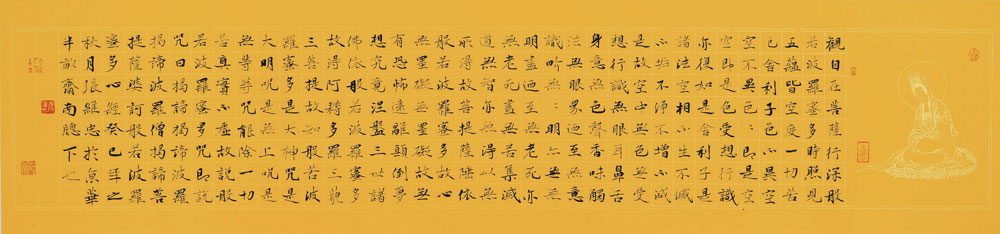 觀自在菩薩行深般
若波羅蜜多時照見
五蘊皆空度一切苦
厄舍利子色不異空
空不異色:即是空
空即是色受想行識
亦復如是舍利子是
諸法空相不生不滅
不垢不淨不增不減
是故空中無色無受
想行識無眼耳鼻舌
身意無色聲香味觸
法無眼界迺至無意
識界無:明亦無無
明盡迺至無老死亦
無老死盡無苦集滅
道無智亦無得以無
所得故菩提薩陲依
般若波羅蜜多故心
無罣礙無罣礙故無
有恐怖遠離顛倒夢
想究竟涅盤三世諸
佛依般若波羅蜜多
故得阿耨多羅三藐
三菩提故知般若波
羅蜜多是大神咒是
大明咒是無上咒是
無等等咒能除一切
苦真實不虛故說般
若波羅蜜多咒即說
咒曰揭諦揭諦波羅
揭諦波羅僧揭諦菩
提薩婆訶般若波羅
蜜多心經癸巳年之
秋月張維忠於京華
半畝齋南牕下也